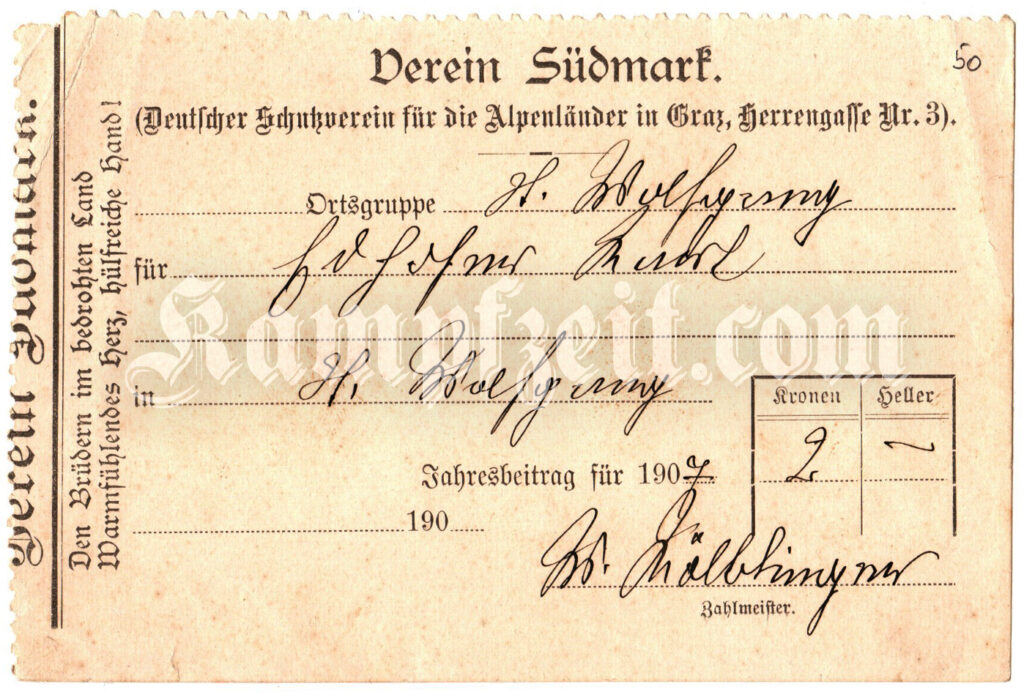 Verein Südmark.
50
(Deutscher Schutzverein für die Alpenländer in Graz, Herrengasse Nr. 3).
Ortsgruppe St. Wolfgang
für Edhofer Karl
in St. Wolfgang
Kronen Heller
2 —
Jahresbeitrag für 1907
190
W.
Zahlmeister.
Verein Südmark.
Den Brüdern im bedrohten Land
Warmfühlendes Herz, hülfreiche Hand!
Kampfzeit.com